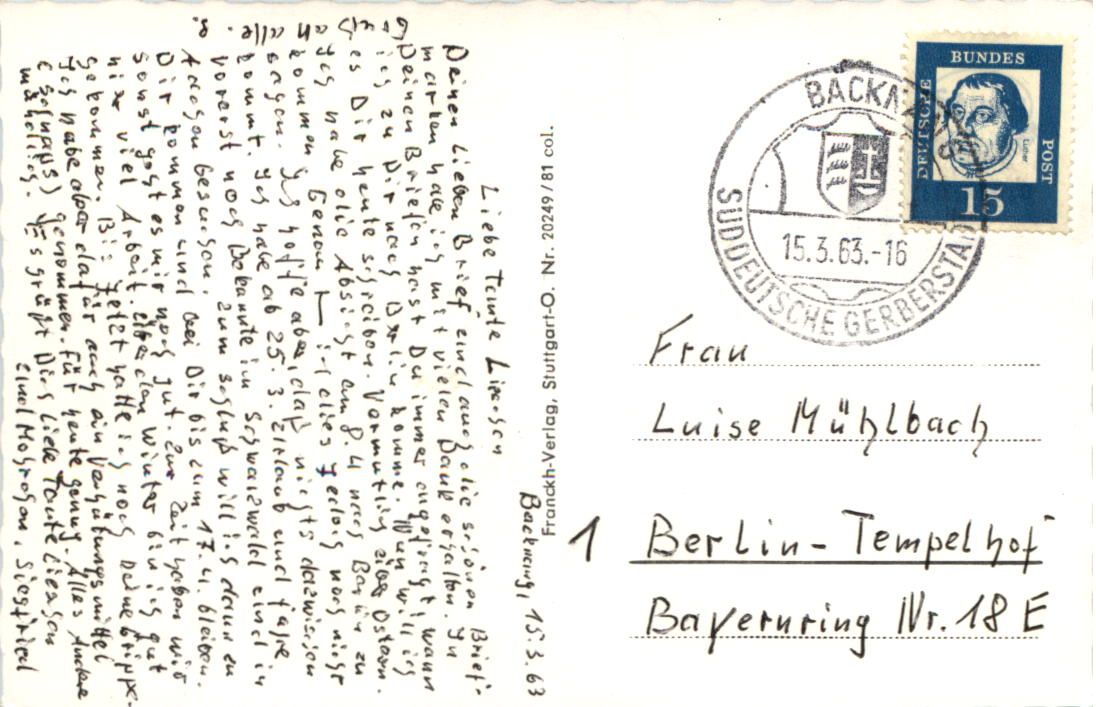 BUNDES
DEUTSCHE
POST
Luther
15
BACKNANG
15.3.63.-16
SÜDDEUTSCHE GERBERSTADT
Frau
Luise Mühlbach
1 Berlin-Tempelhof
Bayernring Nr. 18 E
Franckh-Verlag, Stuttgart-O. Nr. 20249/81 col.
Backnang, 15.3.63
Liebe Tante Lieschen
Deinen lieben Brief und auch die schönen Brief-
marken habe ich mit vielen Dank erhalten. In
Deinen Briefen hast Du immer angefragt, wann
ich zu Dir nach Berlin komme. Nun will ich
es Dir heute schreiben. Vermutlich über Ostern.
Ich habe die Absicht am 8.4 nach Berlin zu
kommen. Genau ist dies jedoch noch nicht
sagen. Ich hoffe aber, daß nichts dazwischen
kommt. Ich habe ab 25.3. Urlaub und fahre
vorerst noch Bekannte im Schwarzwald und in
besuchen. Zum Schluß will ich dann zu
Dir kommen und bei Dir bis zum 17.4. bleiben.
Sonst geht es mir noch gut. Zur Zeit haben wir
viel Arbeit. Über den Winter bin ich gut
gekommen. Bis jetzt hatte ich noch keine Grippe.
Ich habe aber dafür auch ein Verhütungsmittel
(Schnaps) genommen. Für heute genug. Alles Andere
mündlich. Es grüßt Dich liebe Tante Lieschen
und Siegfried
alle.